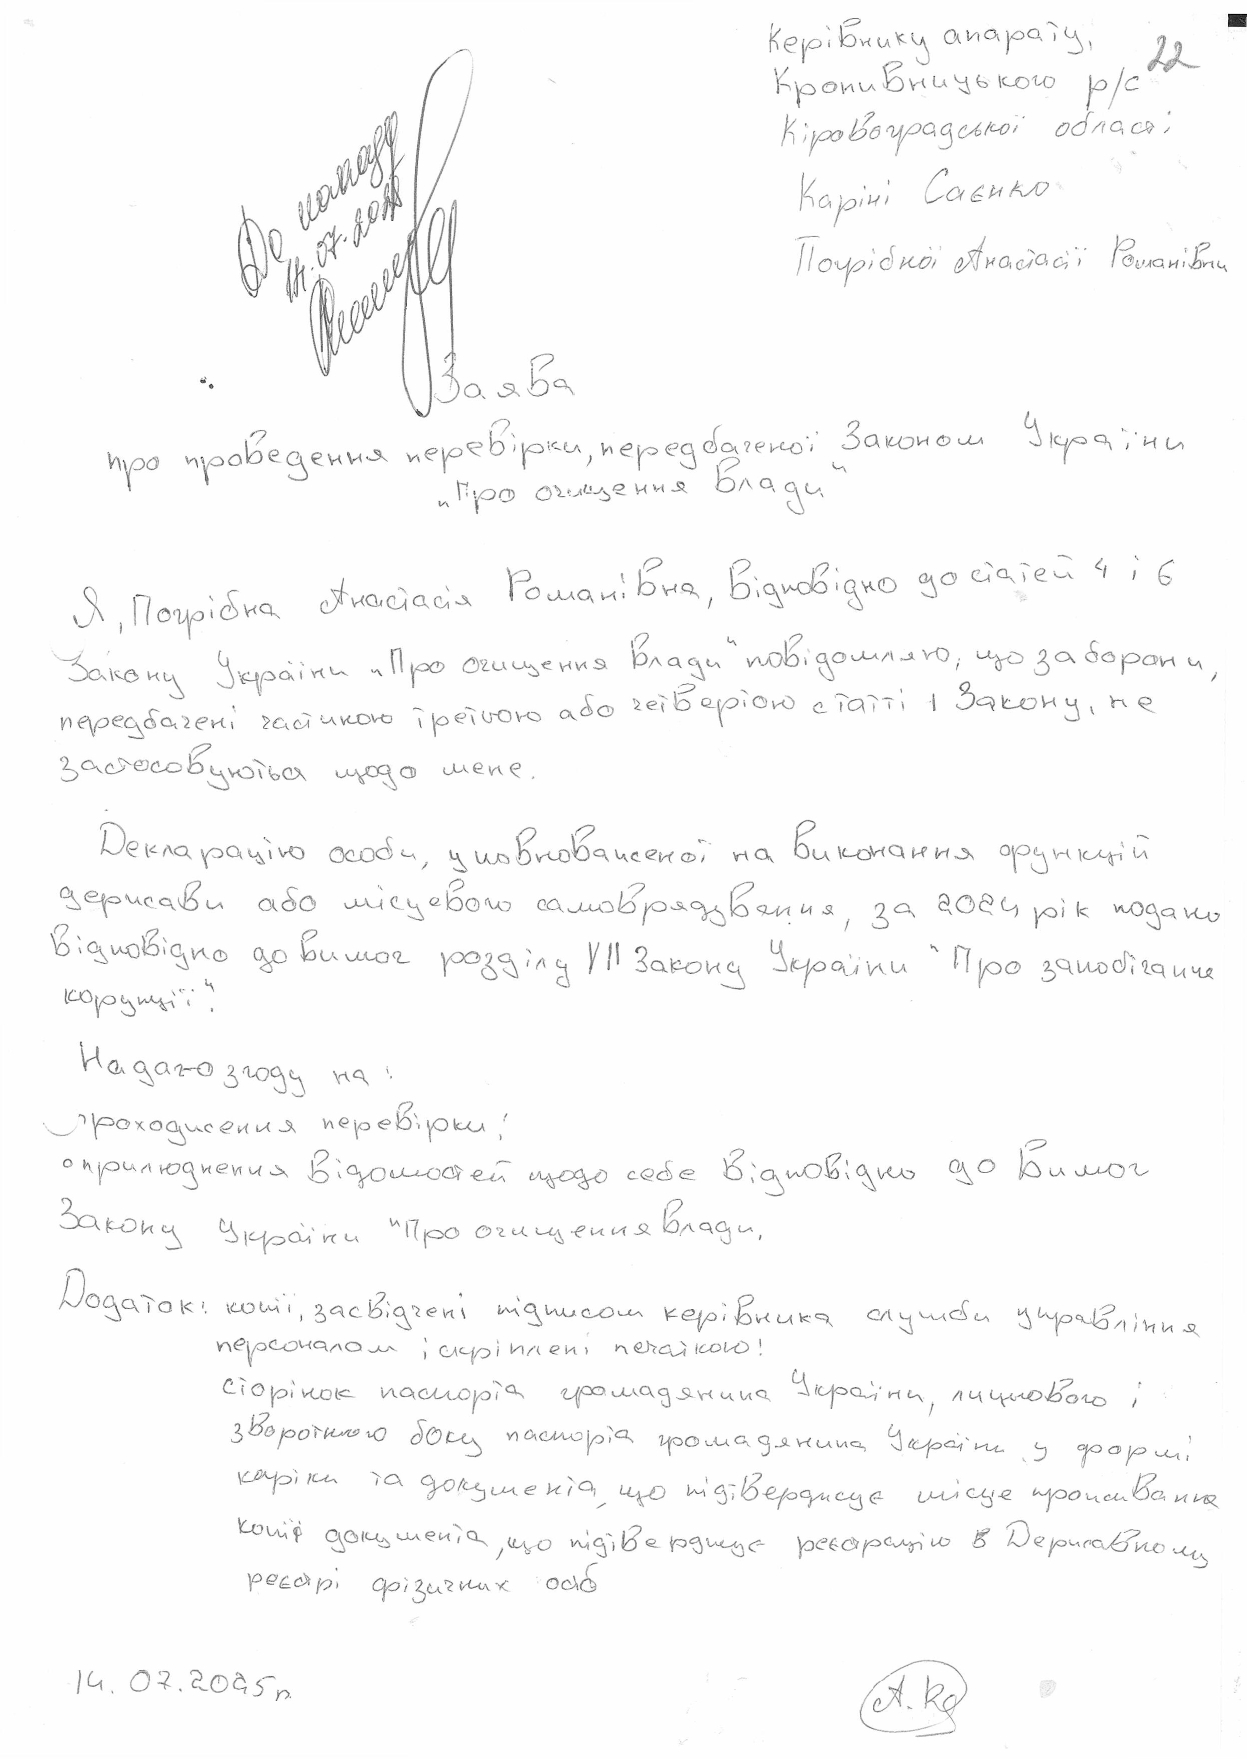 Керівнику апарату,
22
Кропивницького р/с
Кіровоградської області
Каріні Саєнко
Погрібної Анастасії Романівни
До наказу
14.07.2025
Заява
про проведення перевірки, передбаченої Законом України
„Про очищення влади"
Я, Погрібна Анастасія Романівна, відповідно до статей 4 і 6
Закону України „Про очищення влади" повідомляю, що заборони,
передбачені частиною третьою або четвертою статті 1 Закону, не
застосовуються щодо мене.
Декларацію особи, уповноваженої на виконання функцій
держави або місцевого самоврядування, за 2024 рік подано
відповідно до вимог розділу VII Закону України "Про запобігання
корупції".
Надаю згоду на:
проходження перевірки;
оприлюднення відомостей щодо себе відповідно до вимог
Закону України "Про очищення влади.
Додаток: копії, засвідчені підписом керівника служби управління
персоналом і скріплені печаткою:
сторінок паспорта громадянина України, лицьового і
зворотнього боку паспорта громадянина України у формі
картки та документа, що підтверджує місце проживання
копії документа, що підтверджує реєстрацію в Державному
реєстрі фізичних осіб
14.07.2025р.